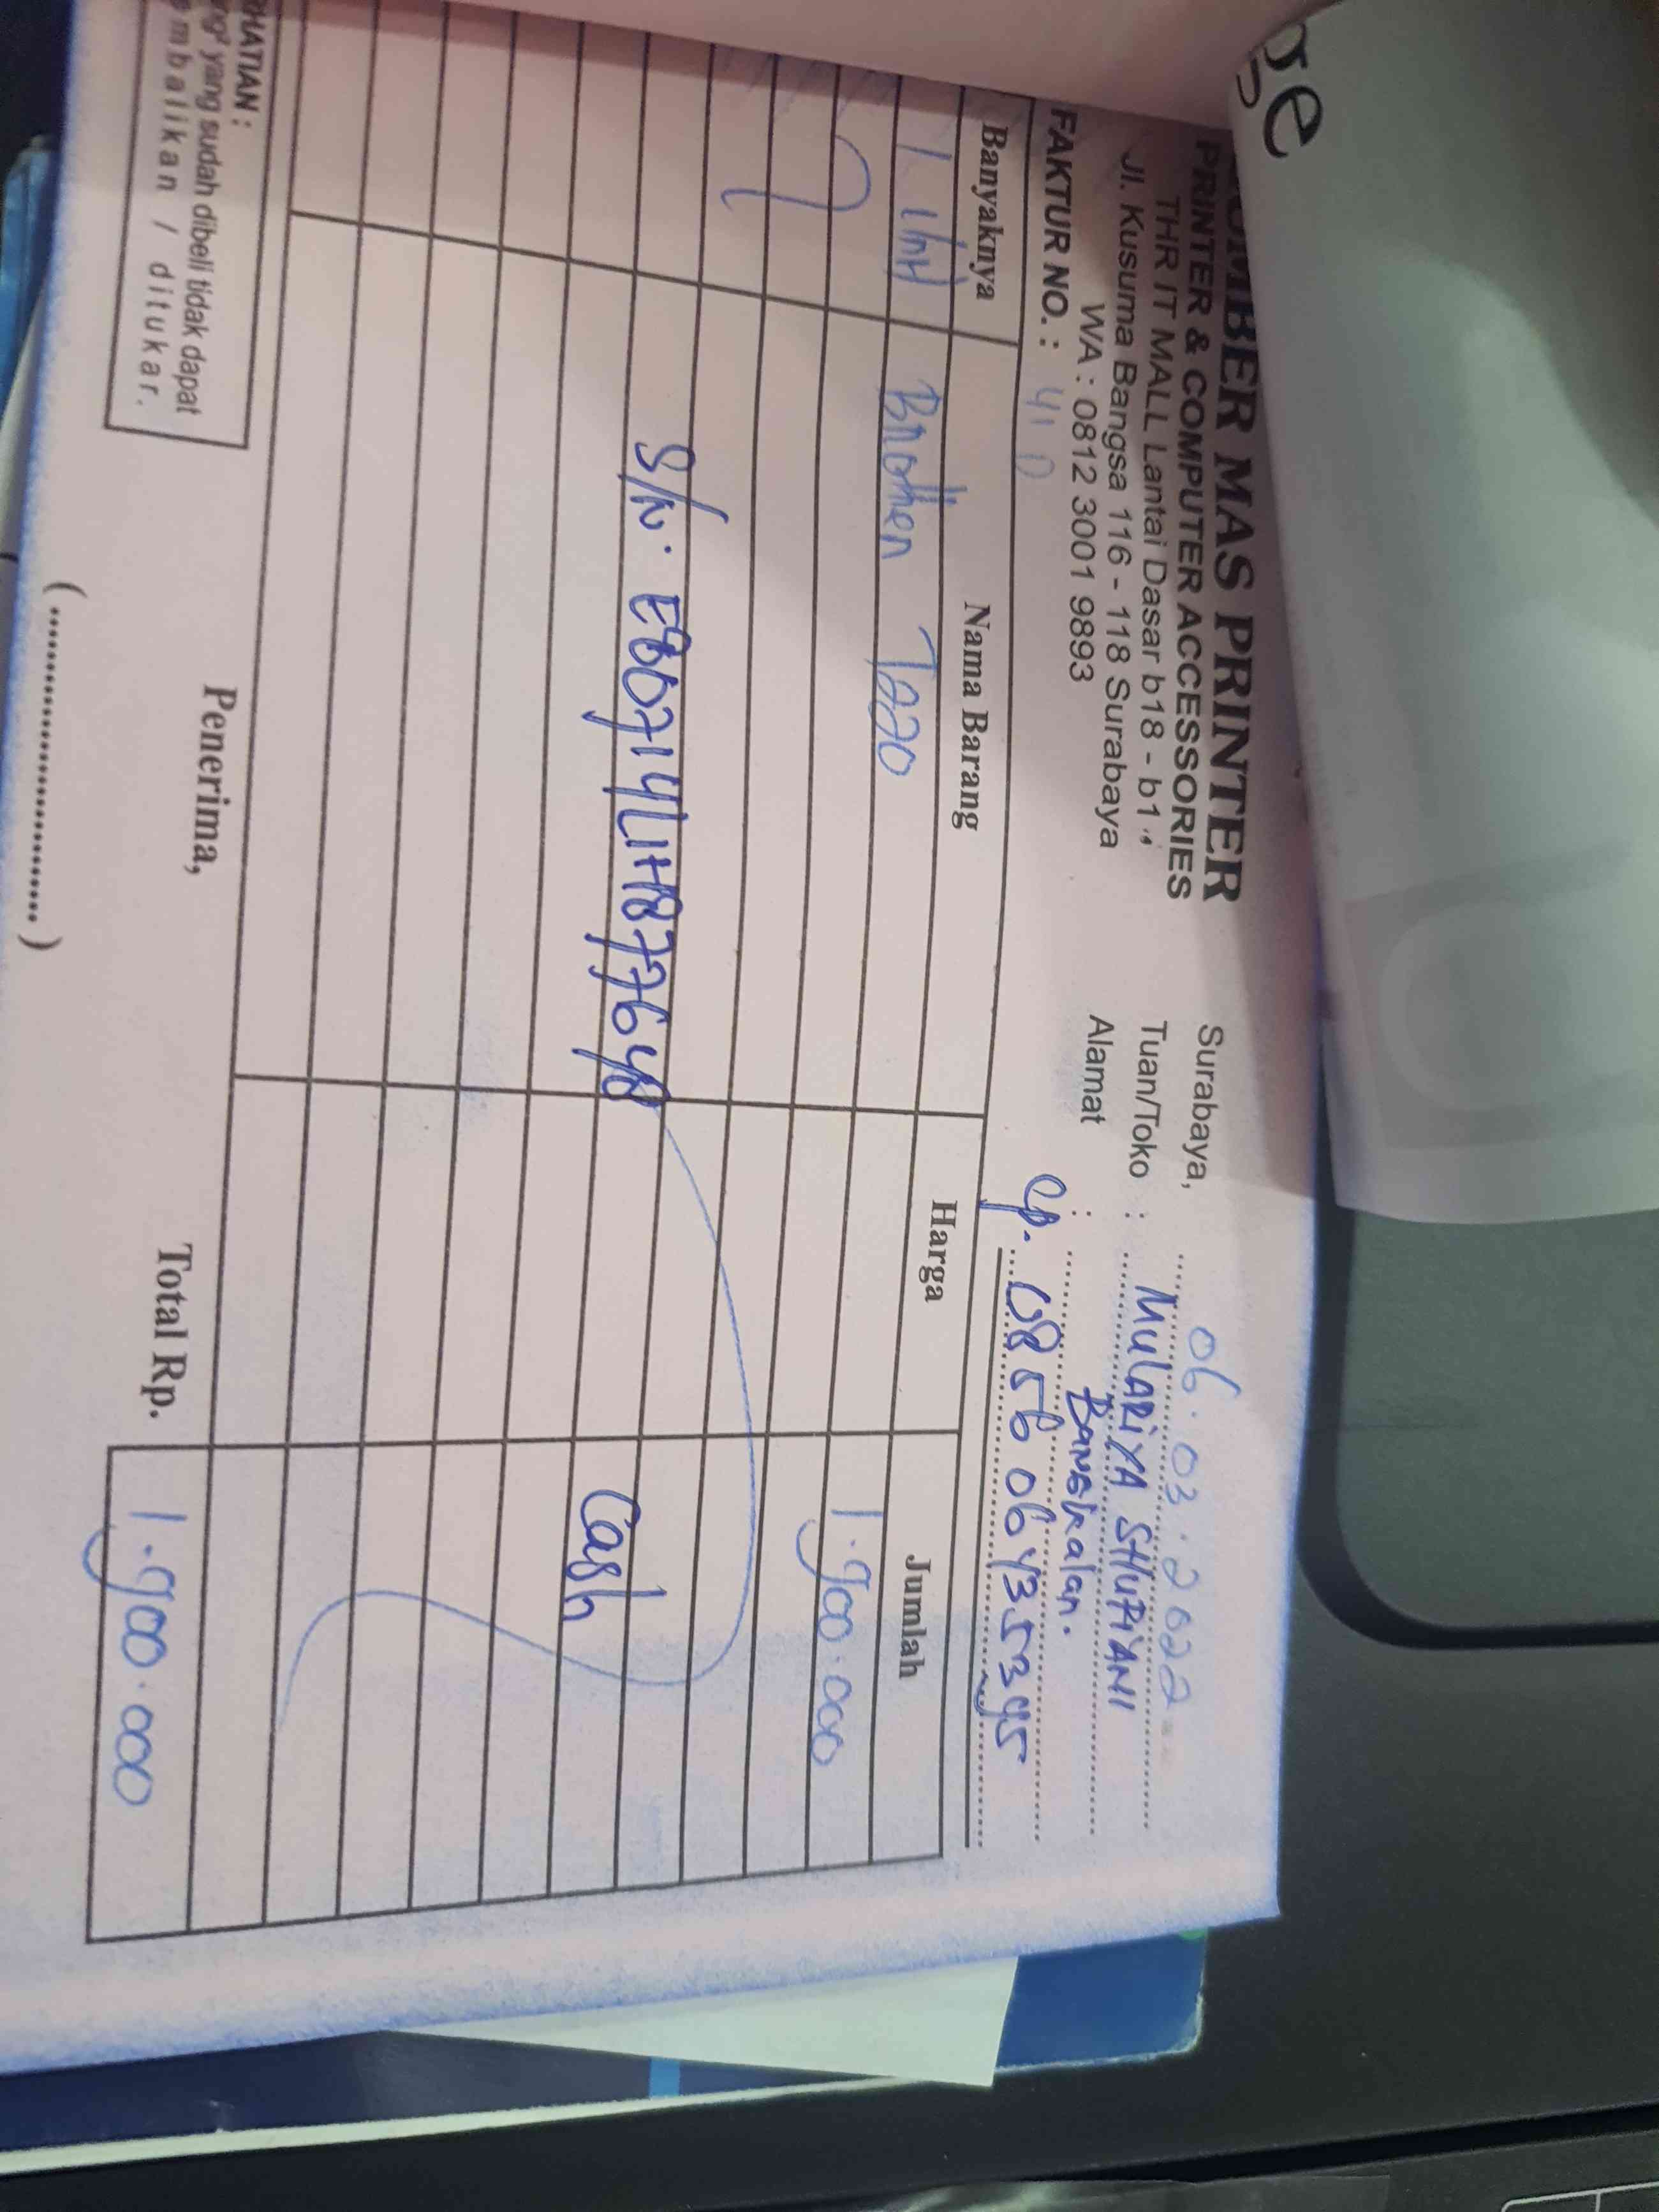 ge
MBER MAS PRINTER
PRINTER & COMPUTER ACCESSORIES
THR IT MALL Lantai Dasar b18 - b1
Jl. Kusuma Bangsa 116 - 118 Surabaya
WA : 0812 3001 9893
FAKTUR NO. :
Surabaya, 06.03.2022
Tuan/Toko : MULARIYA SHUPIYANI
Alamat : Bangkalan.
Cp. 0856 0643 5345
Banyaknya Nama Barang Harga Jumlah
1 Unit Brother T220 1.900.000
S/N. E80714L1H877648
Cash
HATIAN :
yang sudah dibeli tidak dapat
mbalikan / ditukar.
Penerima,
Total Rp. 1.900.000
(..............................)